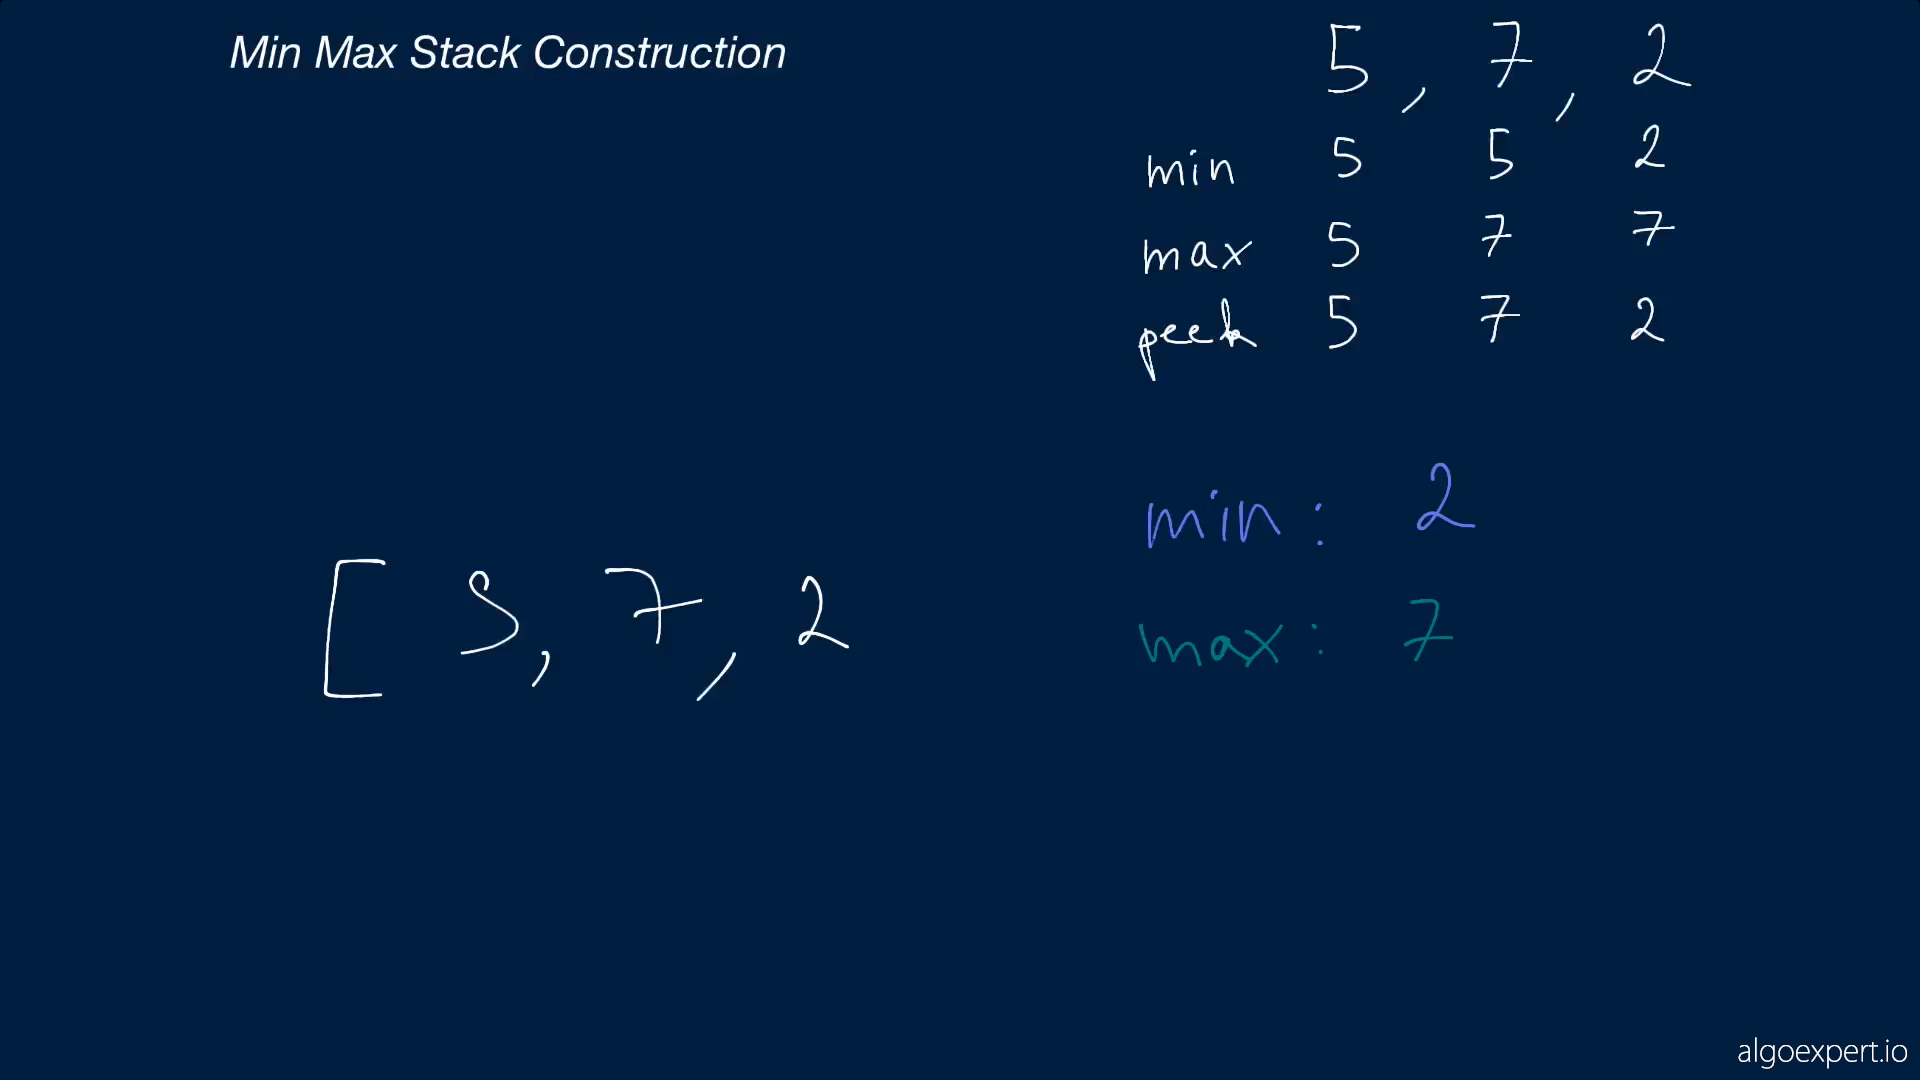 Min Max Stack Construction
5, 7, 2
min 5 5 2
max 5 7 7
peek 5 7 2
min: 2
[ 5, 7, 2
max: 7
algoexpert.io